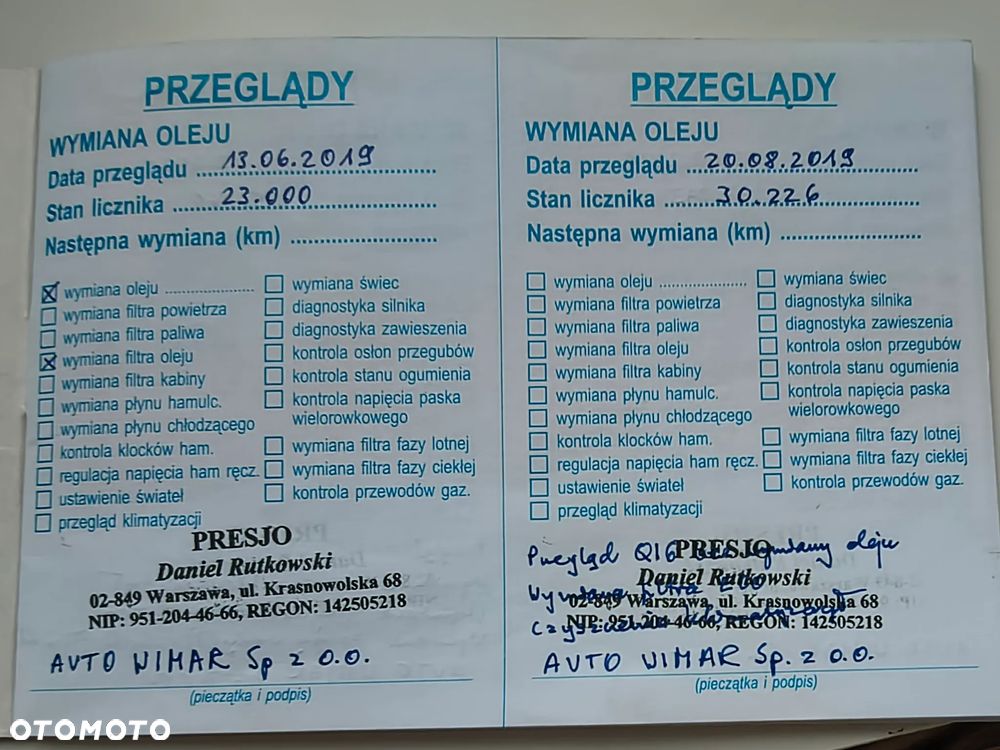 PRZEGLĄDY
WYMIANA OLEJU
Data przeglądu 13.06.2019
Stan licznika 23.000
Następna wymiana (km)
wymiana oleju
wymiana filtra powietrza
wymiana filtra paliwa
wymiana filtra oleju
wymiana filtra kabiny
wymiana płynu hamulc.
wymiana płynu chłodzącego
kontrola klocków ham.
regulacja napięcia ham ręcz.
ustawienie świateł
przegląd klimatyzacji
wymiana świec
diagnostyka silnika
diagnostyka zawieszenia
kontrola osłon przegubów
kontrola stanu ogumienia
kontrola napięcia paska
wielorowkowego
wymiana filtra fazy lotnej
wymiana filtra fazy ciekłej
kontrola przewodów gaz.
PRESJO
Daniel Rutkowski
02-849 Warszawa, ul. Krasnowolska 68
NIP: 951-204-46-66, REGON: 142505218
AUTO WIMAR Sp z o.o.
(pieczątka i podpis)
PRZEGLĄDY
WYMIANA OLEJU
Data przeglądu 20.08.2019
Stan licznika 30.226
Następna wymiana (km)
wymiana oleju
wymiana filtra powietrza
wymiana filtra paliwa
wymiana filtra oleju
wymiana filtra kabiny
wymiana płynu hamulc.
wymiana płynu chłodzącego
kontrola klocków ham.
regulacja napięcia ham ręcz.
ustawienie świateł
przegląd klimatyzacji
wymiana świec
diagnostyka silnika
diagnostyka zawieszenia
kontrola osłon przegubów
kontrola stanu ogumienia
kontrola napięcia paska
wielorowkowego
wymiana filtra fazy lotnej
wymiana filtra fazy ciekłej
kontrola przewodów gaz.
Przegląd Q16 wymiany oleju
PRESJO
Daniel Rutkowski
Wymiana filtra
02-849 Warszawa, ul. Krasnowolska 68
NIP: 951-204-46-66, REGON: 142505218
AUTO WIMAR Sp. z o.o.
(pieczątka i podpis)
OTOMOTO